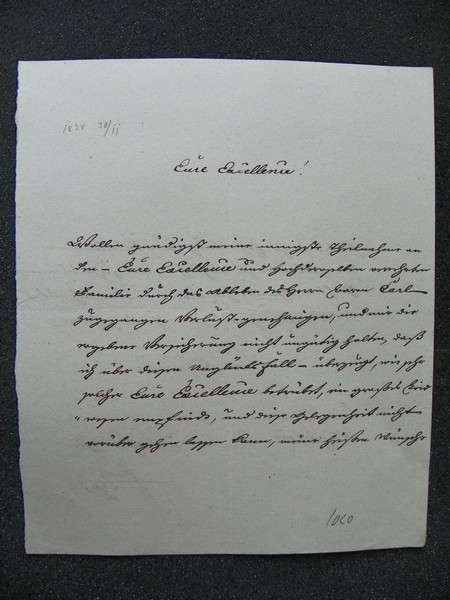 1834 30/11
Eure Excellence!
Wollen gnädigst meine innigste Theilnahme an
den – Eure Excellence und Hochderoselben verehrten
Familie durch das Ableben des Herrn Baron Carl
zugegangenen Verlust – genehmigen, und mir die
ergebene Versicherung nicht ungütig halten, daß
ich über diesen Unglücksfall – überzeugt, wie sehr
solcher Eure Excellence betrübet, ein großes Leid
wesen empfinde, und diese Gelegenheit nicht
vorüber gehen lassen kann, meine heißen Wünsche